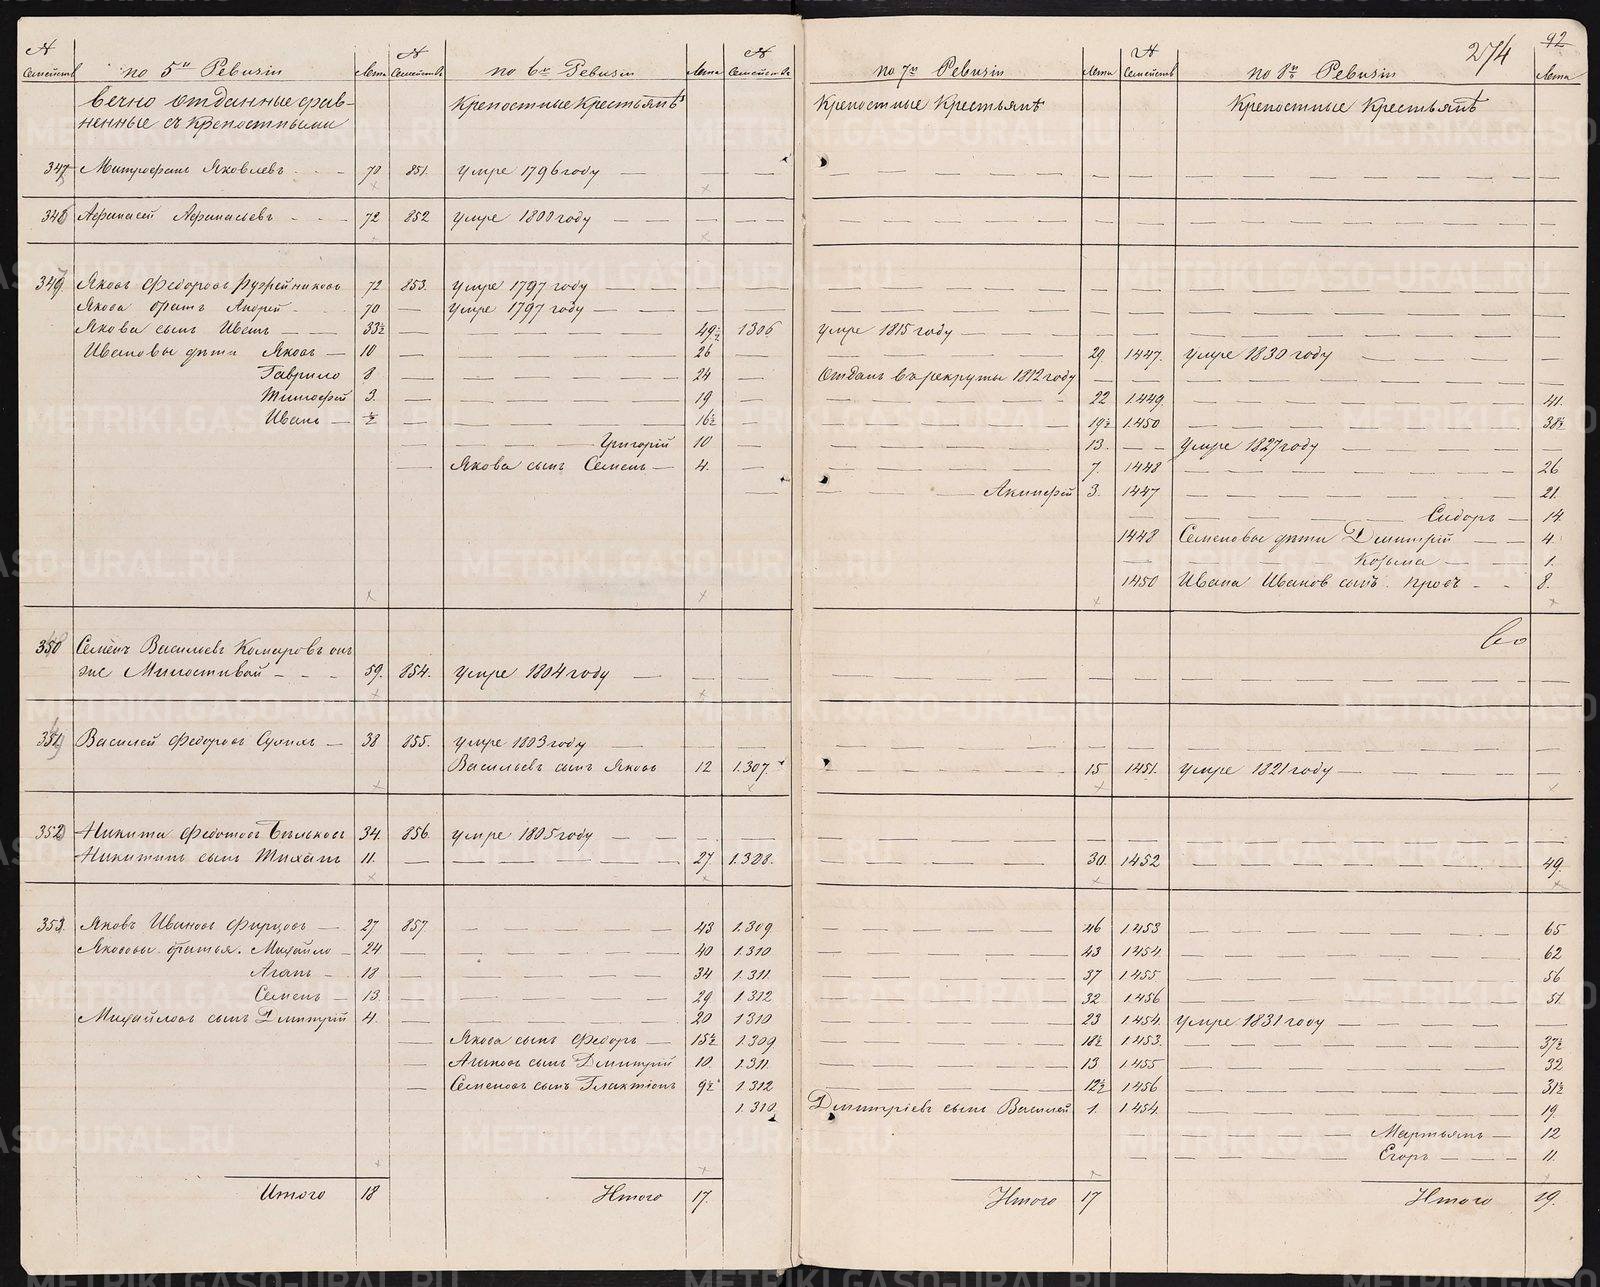 274 92
№ Семейств по 5й Ревизии Лета № Семейств по 6й Ревизии Лета № Семейств по 7й Ревизии Лета № Семейств по 8й Ревизии Лета
вечно отданные срав- Крепостные Крестьянѣ Крепостные Крестьянѣ Крепостные Крестьянѣ
ненные съ крепостными
347 Митрофанъ Яковлевъ 70 851. умре 1796 году
348 Афанасей Афанасьевъ 72 852 умре 1800 году
349. Яковъ Федоровъ Ружейниковъ 72 853. умре 1797 году
Якова братъ Андрей 70 умре 1797 году
Якова сынъ Иванъ 33½ 49½ 1306 умре 1815 году
Ивановы дѣти Яковъ 10 26 29 1447. умре 1830 году
Гаврило 8 24 Отданъ въ рекруты 1812 году
Тимофей 3. 19 22 1449. 41.
Иванъ ½ 16½ 19½ 1450 38½
Григорій 10 13. умре 1827 году
Якова сынъ Семенъ 4. 7. 1448 26
Акинфей 3. 1447 21.
Сидоръ 14.
1448 Семеновы дѣти Дмитрій 4
Козьма 1.
1450 Ивана Иванов сынъ Проч 8.
350 Семенъ Васильевъ Комаровъ онъ
же Милостивой 59. 854. умре 1804 году
351 Василей Федоровъ 38 855. умре 1803 году
Васильевъ сынъ Яковъ 12 1.307. 15 1451. умре 1821 году
352 Никита Федотовъ Бѣльковъ 34. 856. умре 1805 году
Никитинъ сынъ 11. 27. 1.308. 30. 1452 49.
353. Яковъ Ивановъ Фирсовъ 27 857 43 1.309 46 1453 65
Яковы братья. Михайло 24 40 1.310 43 1454. 62
Агапъ 18 34 1.311. 37 1455 56
Семенъ 13. 29 1.312 32 1456 51.
Михайловъ сынъ Дмитрій 4. 20 1310 23 1454. умре 1831 году
Якова сынъ Федоръ 15½ 1.309 18½ 1453. 37½
Агаповъ сынъ Дмитрій 10. 1.311. 13 1455 32
Семеновъ сынъ Галактіонъ 9½ 1312 12½ 1456 31½
1.310 Дмитріевъ сынъ Василей 1. 1454. 19.
Мартьянъ 12
Егоръ 11.
Итого 18 Итого 17. Итого 17 Итого 19.
METRIKI.GASO-URAL.RU